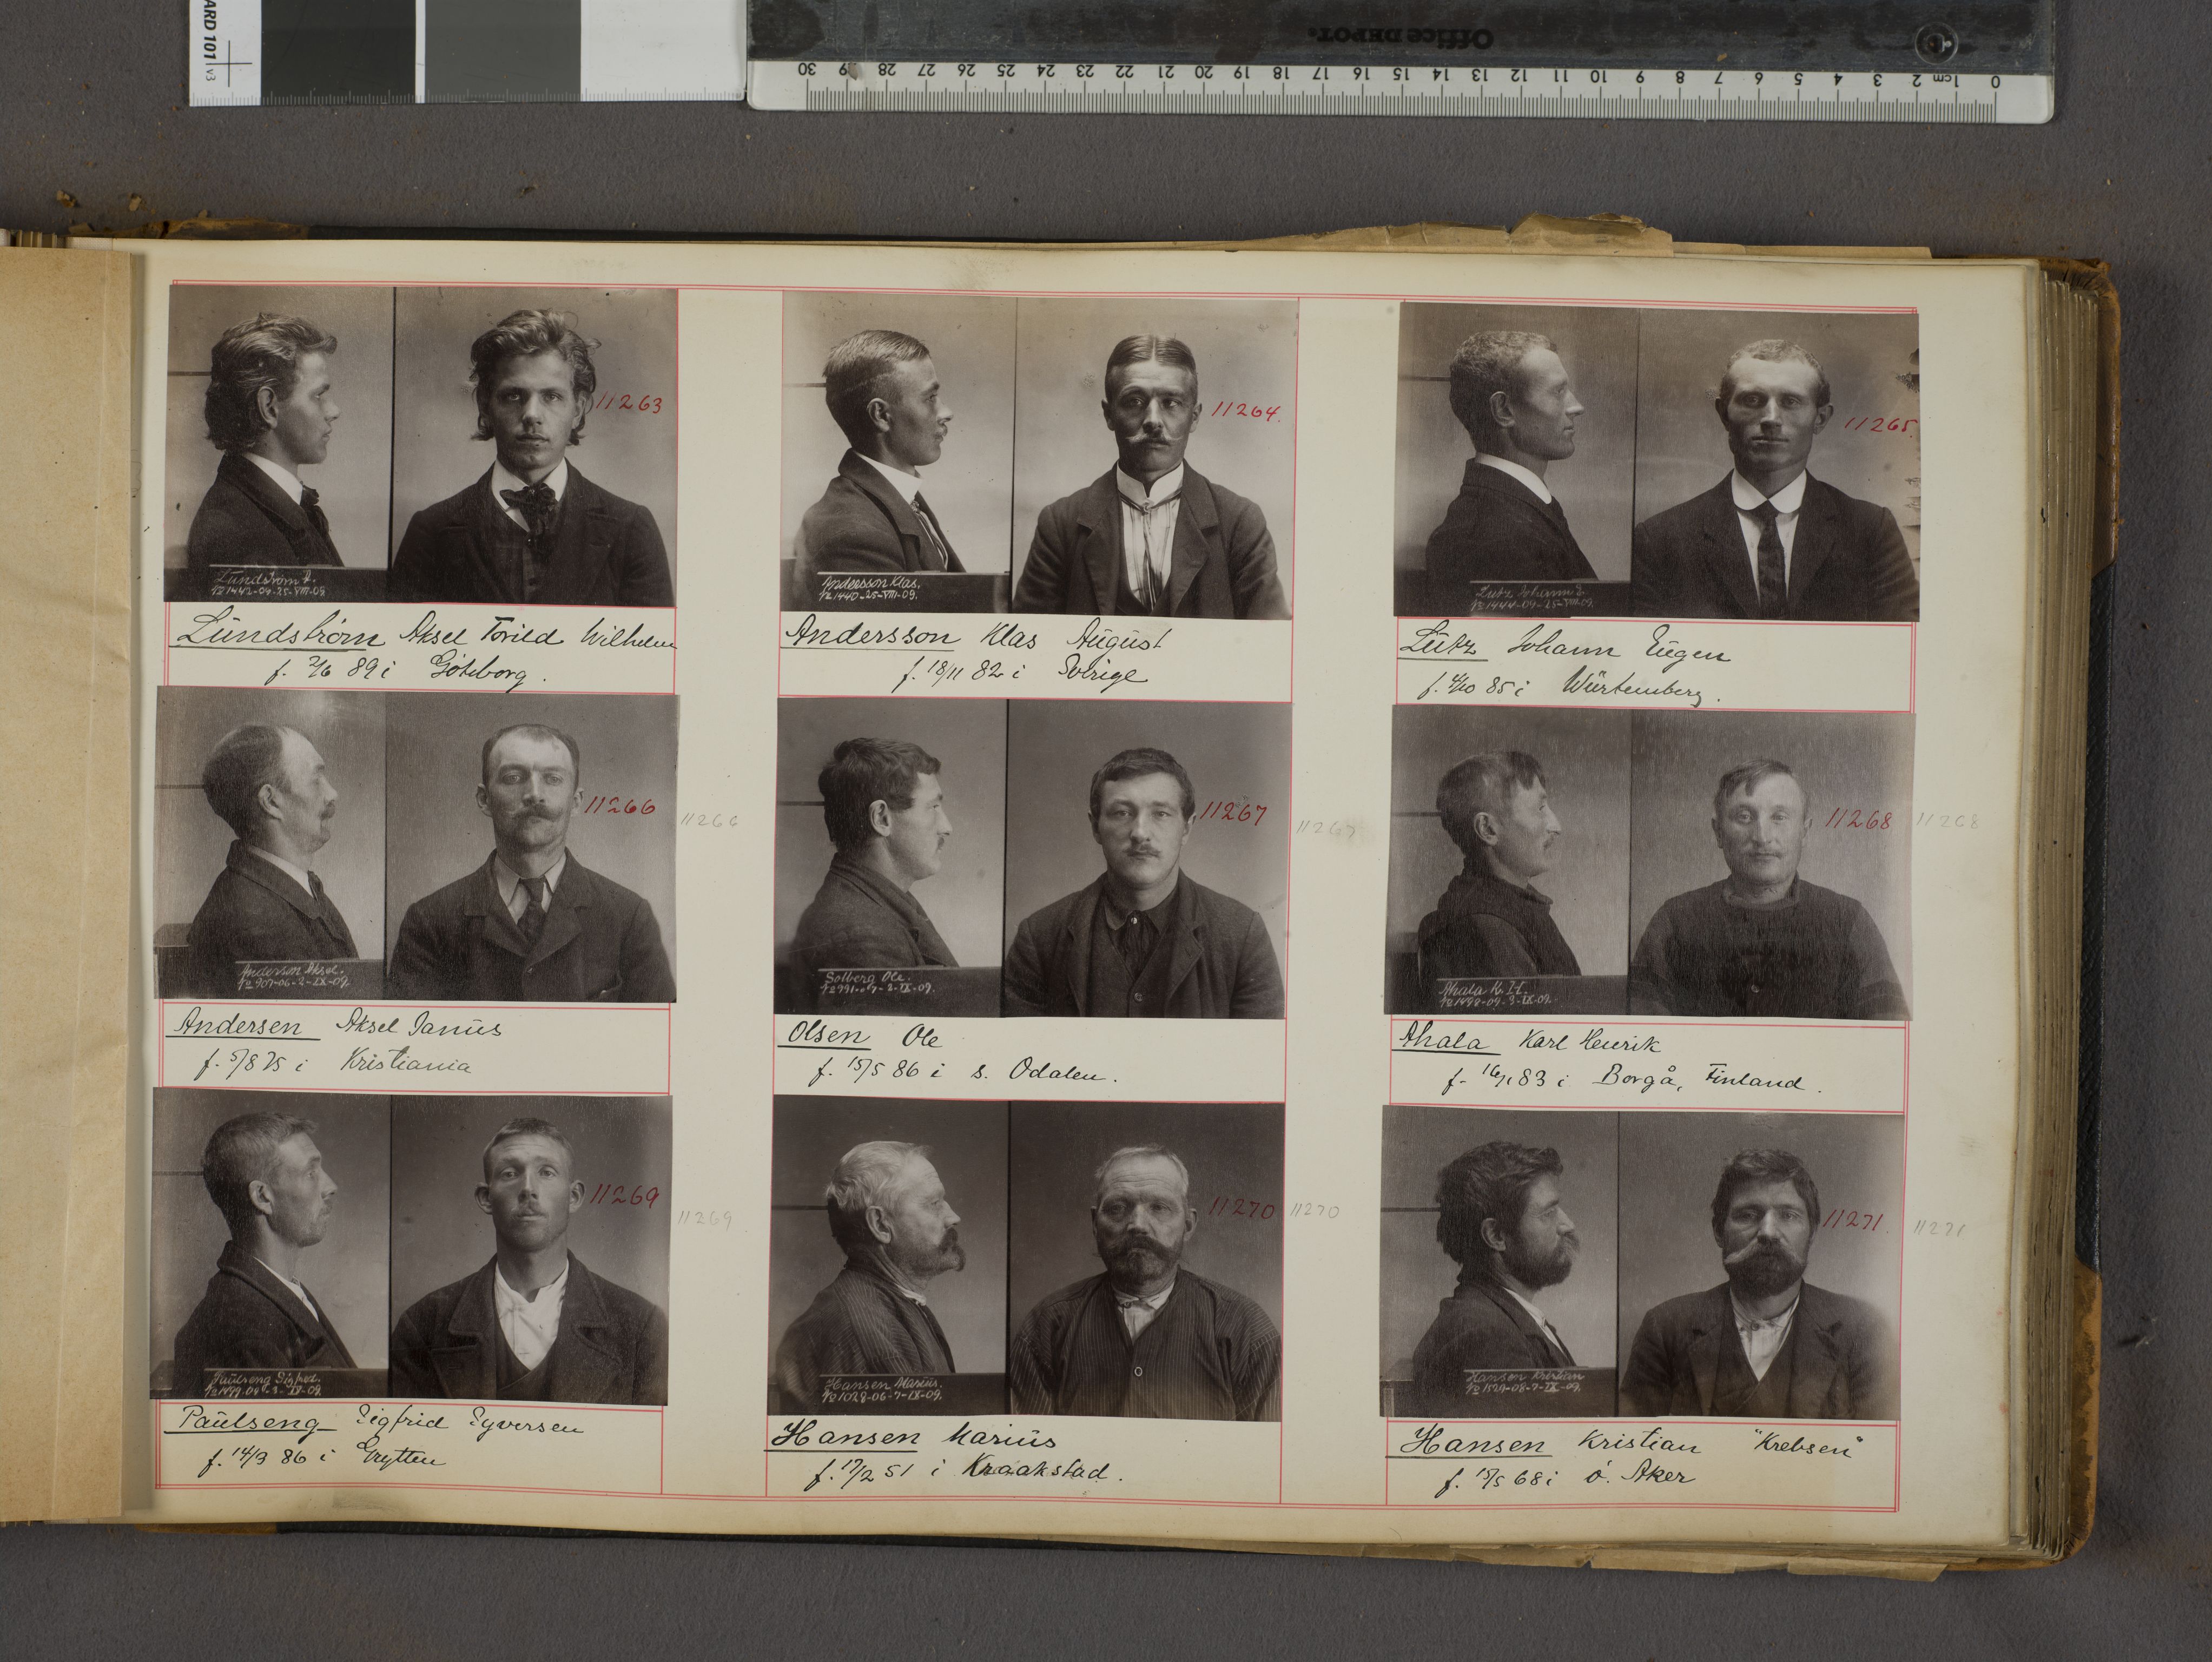 ARD 101 v3
Office DEPOT.
0 1cm 2 3 4 5 6 7 8 9 10 11 12 13 14 15 16 17 18 19 20 21 22 23 24 25 26 27 28 29 30
11263
Lundstrøm A.
№1442-09-25-VIII-09
Lundstrøm Aksel Torild Wilhelm
f. 2/6 89 i Göteborg.
11264.
Andersson Klas.
№1440-25-VIII-09.
Andersson Klas August
f. 18/11 82 i Sverige
11265.
Lutz Johann E.
№1444-09-25-VIII-09.
Lutz Johann Eugen
f. 4/10 85 i Würtemberg.
11266 11266
Andersen Aksel.
№907-06-2-IX-09.
Andersen Aksel Janus
f. 5/8 75 i Kristiania
11267 11267
Solberg Ole.
№791-09-2-IX-09.
Olsen Ole
f. 15/5 86 i s. Odalen.
11268 11268
Ahala K. H.
№1498-09-3-IX-09.
Ahala Karl Henrik
f. 16/1 83 i Borgå, Finland.
11269 11269
Paulseng Sigfrid.
№1499-09-3-IX-09.
Paulseng Sigfrid Syversen
f. 14/3 86 i Grytten
11270 11270
Hansen Marius.
№1028-06-7-IX-09.
Hansen Marius
f. 17/2 51 i Kraakstad.
11271. 11271
Hansen Kristian
№1521-08-7-IX-09.
Hansen Kristian "Krebsen"
f. 15/5 68 i ö. Aker